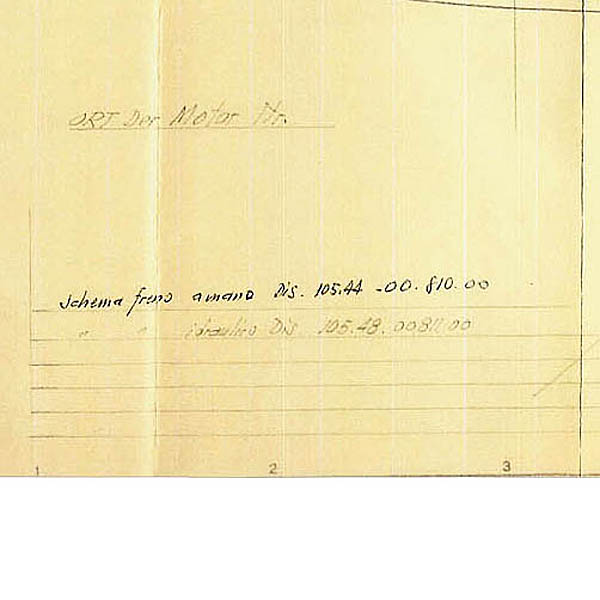 ORT Der Motor Nr.
Schema freno a mano Dis. 105.44 -00.810.00
" " idraulico Dis. 105.48.00811.00
1 2 3